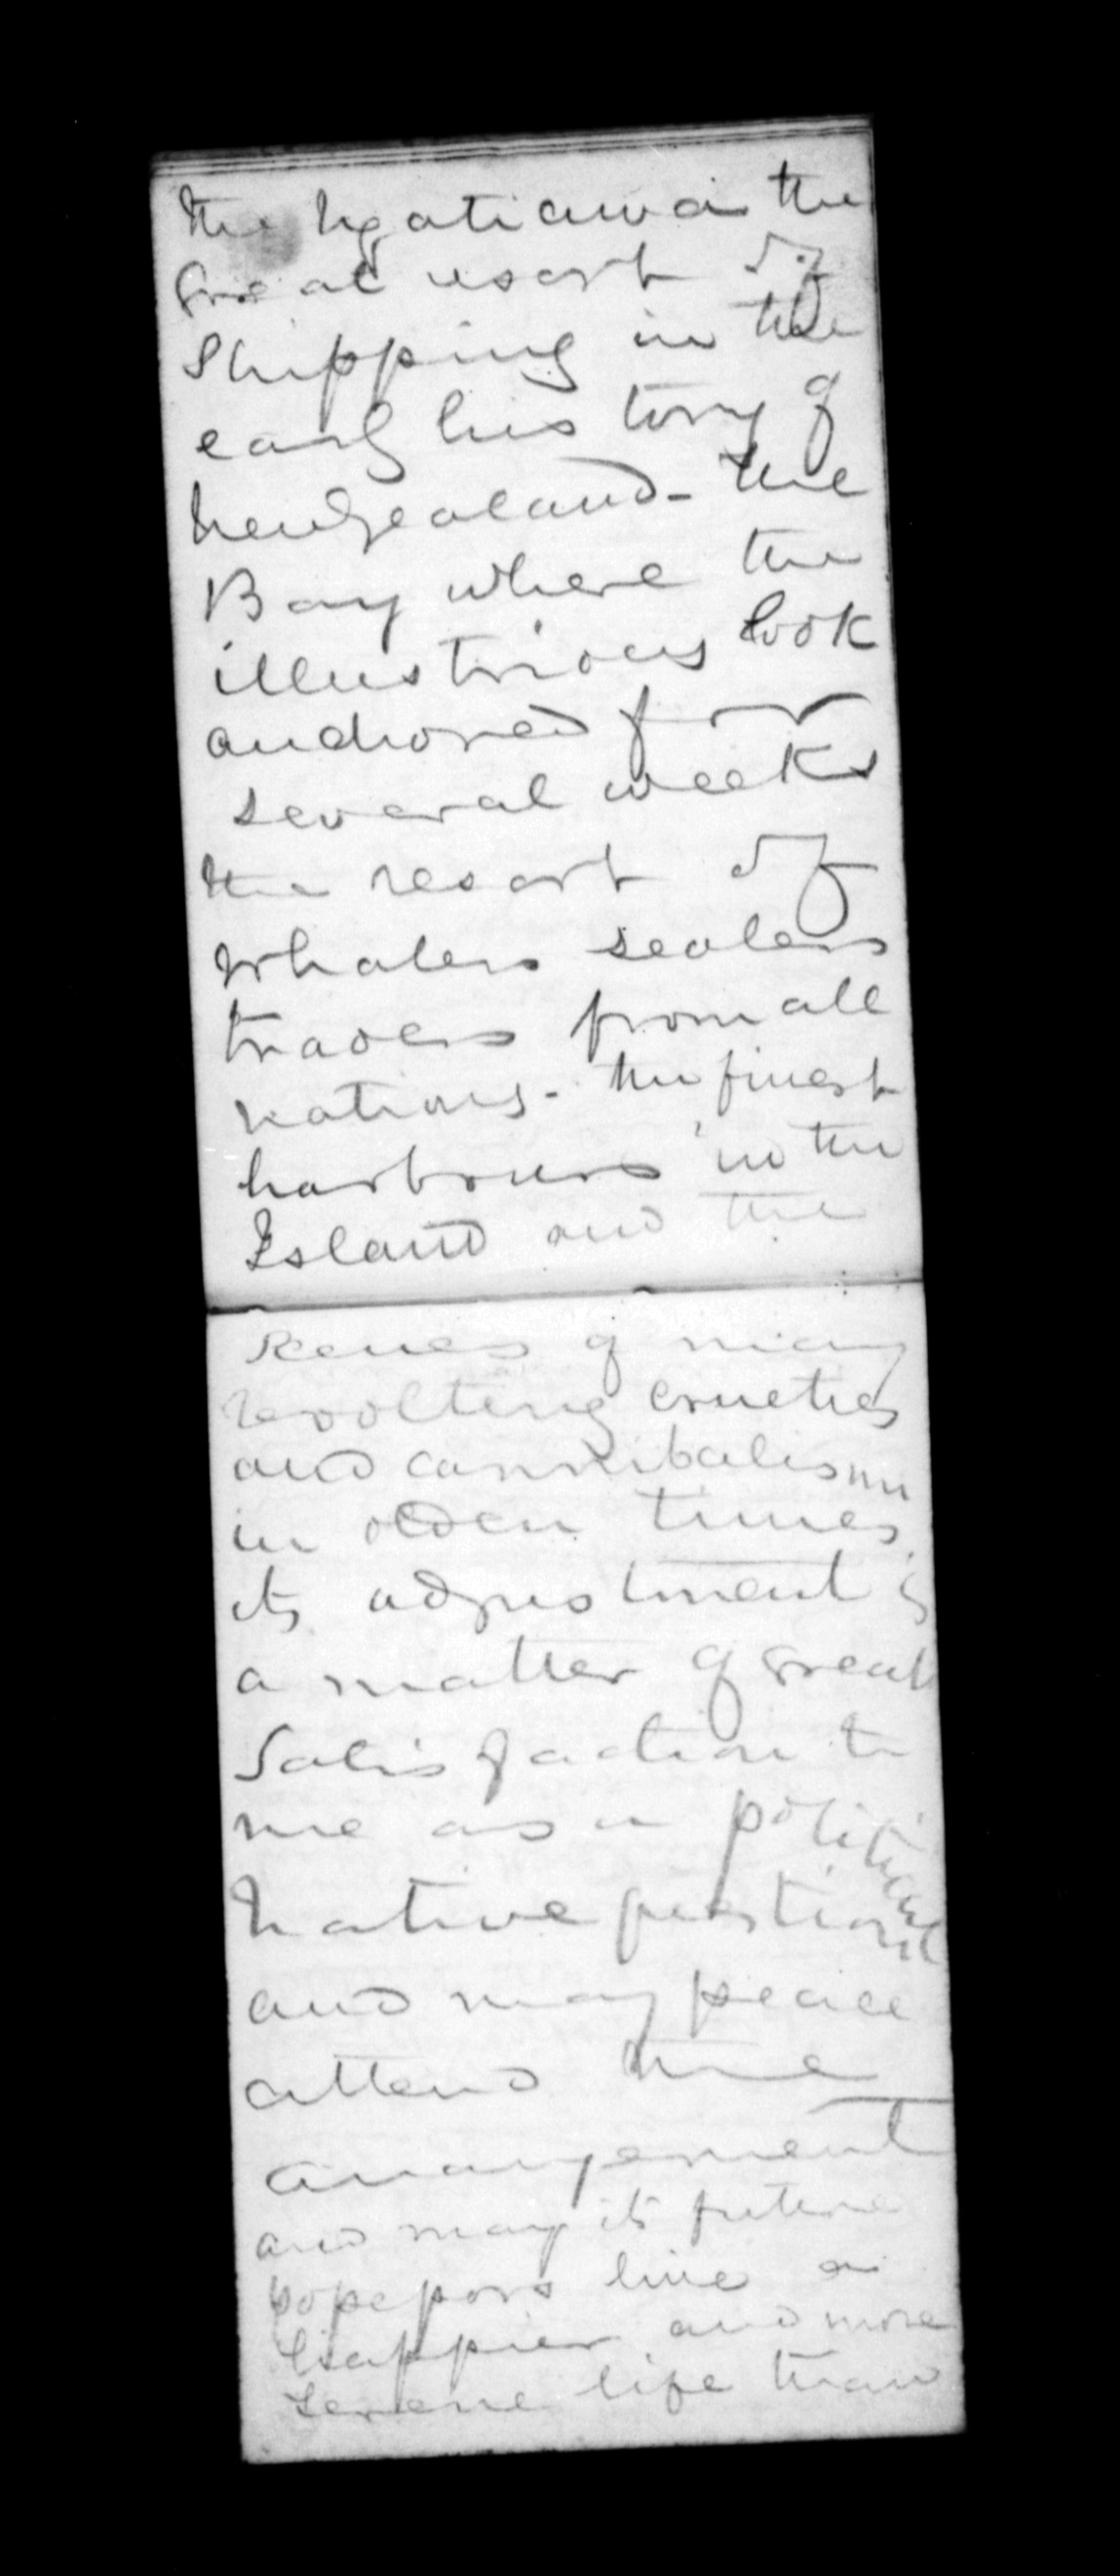 the Ngatiawa the
great resort of
Shipping in the
early history of
New Zealand - the
Bay where the
illustrious Cook
anchored for
several weeks
the resort of
whalers sealers
traders from all
nations - the finest
harbours in the
Island and the
scenes of many
revolting cruelties
and cannibalism
in olden times
its adjustment is
a matter of great
Satisfaction to
me as a political
Native question
and may peace
attend the
arrangement
and may its future
live a
happier and more
serene life than